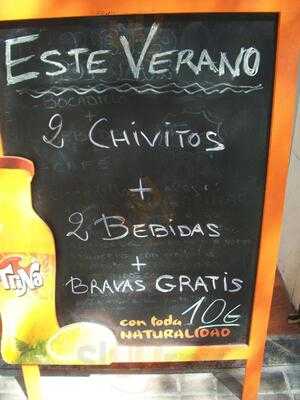 ESTE VERANO
2 CHIVITOS
+
2 BEBIDAS
+
BRAVAS GRATIS
10€
con toda
NATURALIDAD
Trina